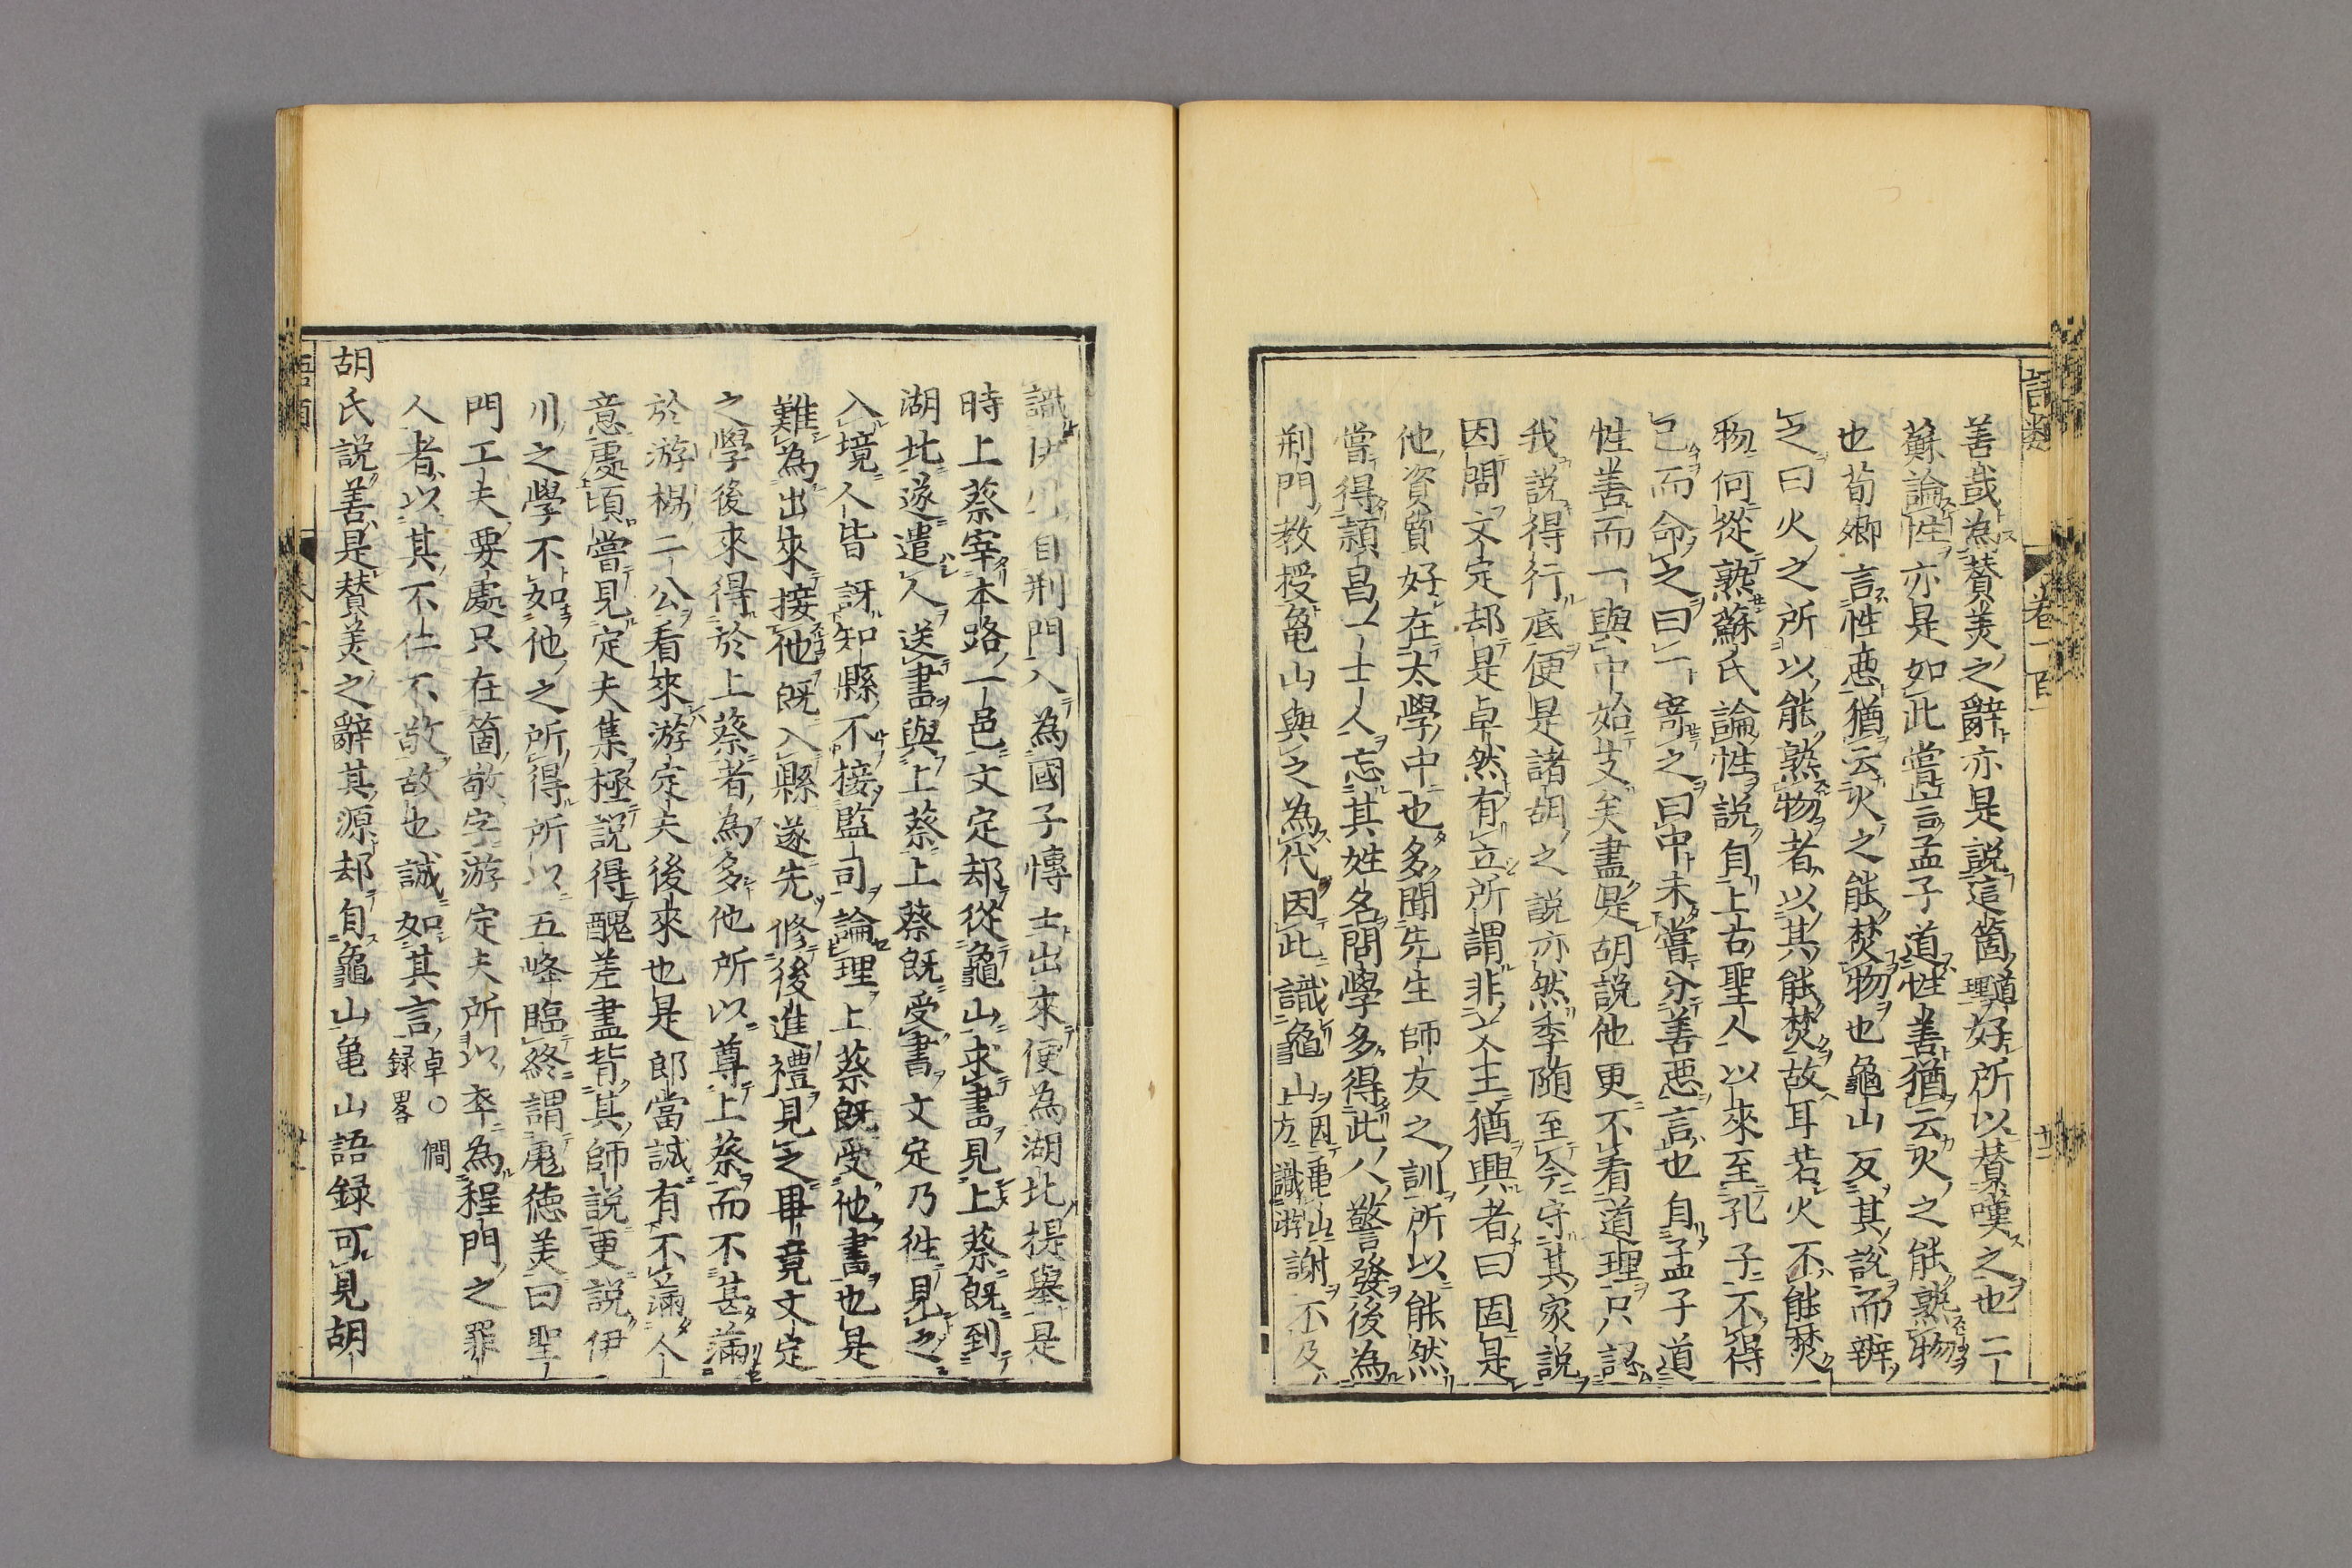 語類
卷一百一
善哉為賛美之辭亦是說這箇道理好所以賛嘆之也二
蘇論性亦是如此嘗言孟子道性善猶云火之能熟物
也荀卿言性惡猶云火之能焚物也龜山反其說而辨
之曰火之所以能熟物者以其能焚故耳若火不能焚
物何從熟蘇氏論性說自上古聖人以來至孔子不得
已而命之曰一寄之曰中未嘗分善惡言也自孟子道
性善而一與中始支矣盡是胡說他更不看道理只認
我說得行底便是諸胡之說亦然季隨至今守其家說
因問文定却是卓然有立所謂非文王猶興者曰固是
他資質好在太學中也多聞先生師友之訓所以能然
嘗得潁昌一士人忘其姓名問學多得此人警發後為
荆門教授龜山與之為代因此識龜山因龜山方識游謝不及
識伊川自荆門入為國子博士出來便為湖北提舉是
時上蔡宰本路一邑文定却從龜山求書見上蔡既到
湖北遂遣人送書與上蔡上蔡既受書文定乃徃見之
入境人皆訝知縣不接監司論理上蔡既受他書也是
難為出來接他既入縣遂先修後進禮見之畢竟文定
之學後來得於上蔡者為多他所以尊上蔡而不甚滿
於游楊二公看來游定夫後來也是郎當誠有不滿人
意處頃嘗見定夫集極說得醜差盡背其師說更說伊
川之學不如他之所得所以五峰臨終謂彪德美曰聖
門工夫要處只在箇敬字游定夫所以卒為程門之罪
人者以其不仁不敬故也誠如其言卓○僩録畧
胡氏說善是賛美之辭其源却自龜山龜山語録可見胡